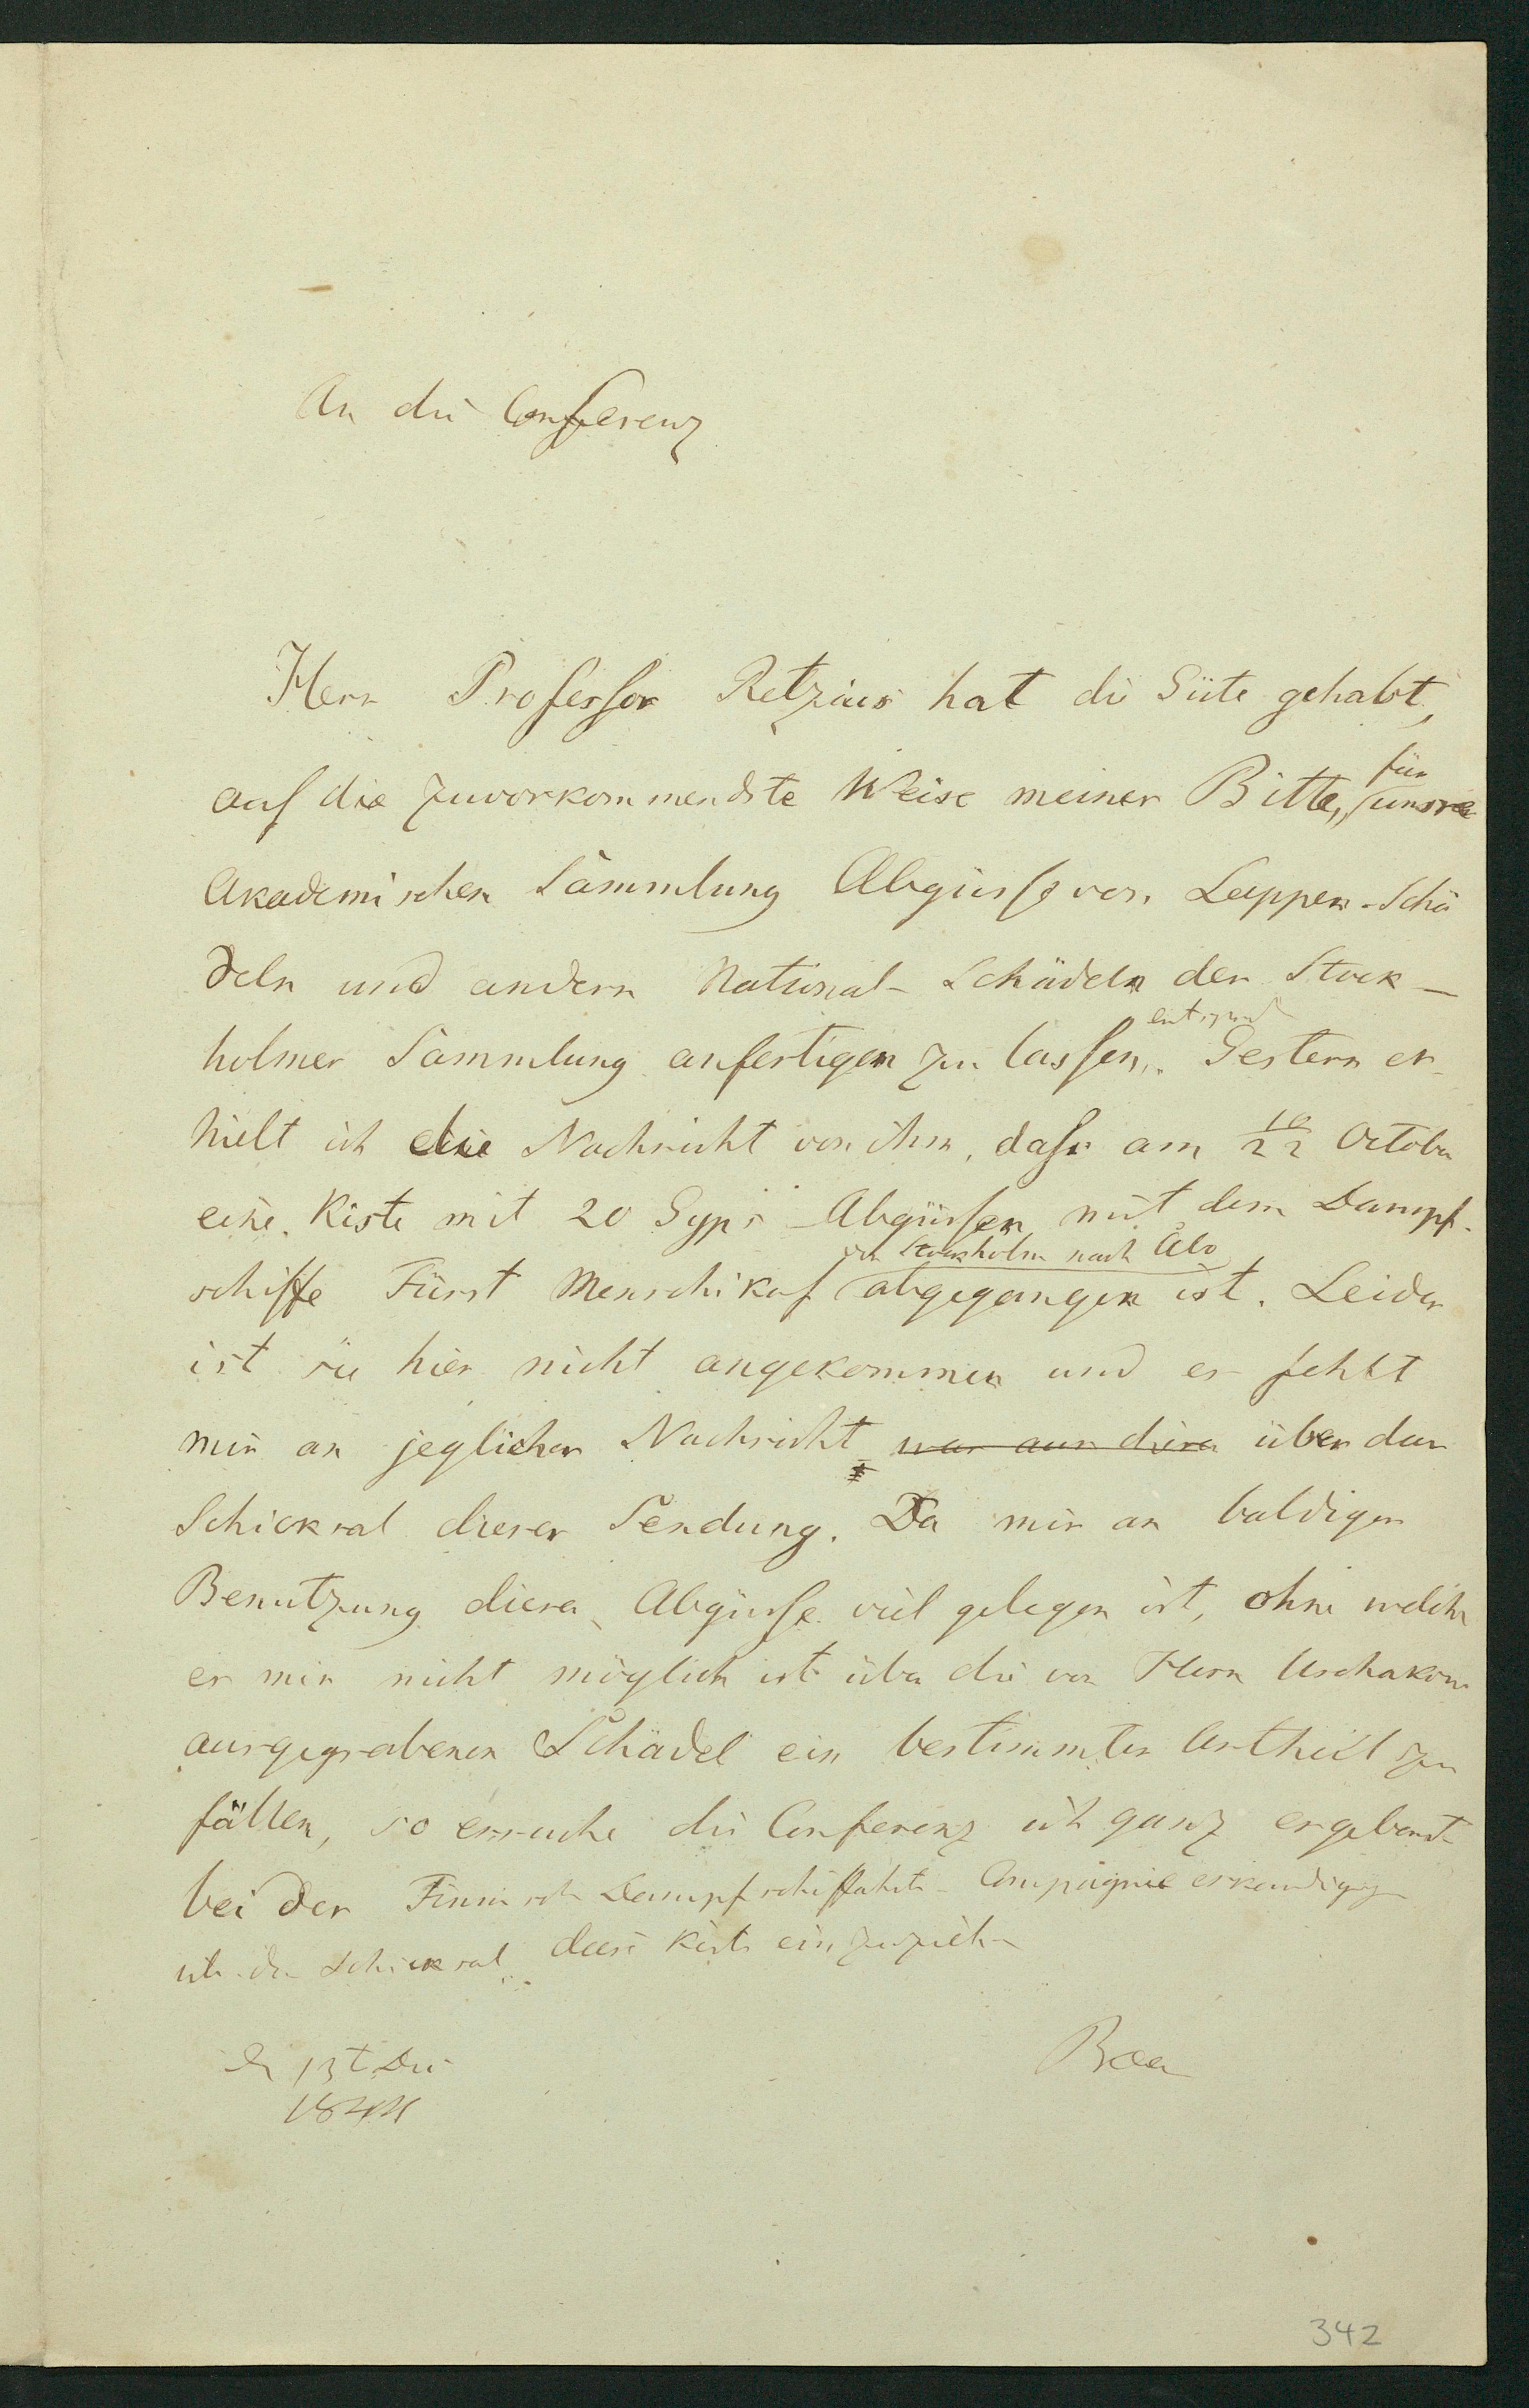 An die Conferenz
Herr Professor Retzius hat die Güte gehabt,
auf die zuvorkommendste Weise meiner Bitte, für unsre
Akademischen Sammlung Abgüsse von Lappen-Schä
deln und andern National-Schädeln der Stock-
holmer Sammlung anfertigen zu lassen, entsprochen. Gestern er-
hielt ich die Nachricht von ihm, dass am 10/22 October
eine Kiste mit 20 Gyps-Abgüssen mit dem Dampf-
schiffe Fürst Menschikof von Stockholm nach Åbo abgegangen ist. Leider
ist sie hier nicht angekommen und es fehlt
mir an jeglicher Nachricht über das
Schicksal dieser Sendung. Da mir an baldiger
Benutzung dieser Abgüsse viel gelegen ist, ohne welche
es mir nicht möglich ist über die von Herrn Uschakow
ausgegrabenen Schädel ein bestimmtes Urtheil zu
fällen, so ersuche die Conferenz ich ganz ergebenst
bei der Finnisch Dampfschiffahrts-Compagnie erkundigung
über das Schicksal diese Kiste einzuziehen
d 13t Dec
1844
Baer
342